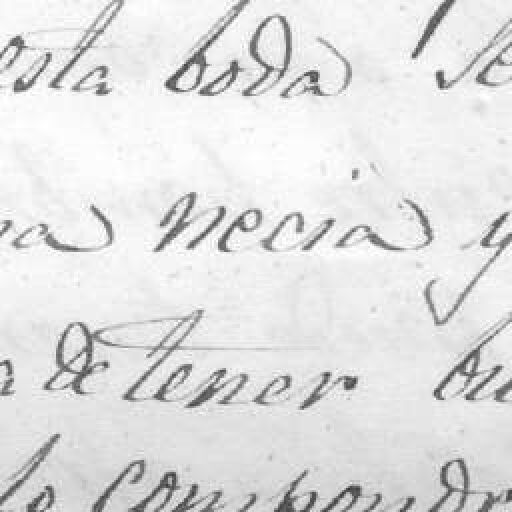 esta boda se
na necia y
a de tener bu
lo compondr